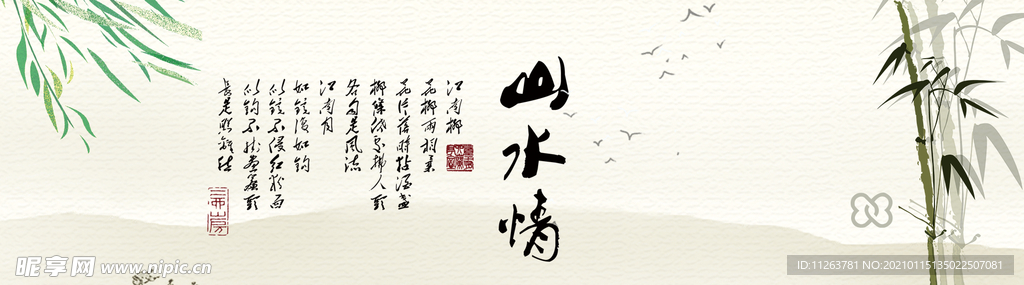 山水情
江南柳
花柳两相柔
花片落时黏酒盏
柳条低处拂人头
各自是风流
江南月
如镜复如钩
似镜不侵红粉面
似钩不挂画帘头
长是照离愁
昵享网 www.nipic.cn
ID:11263781 NO:20210115135022507081